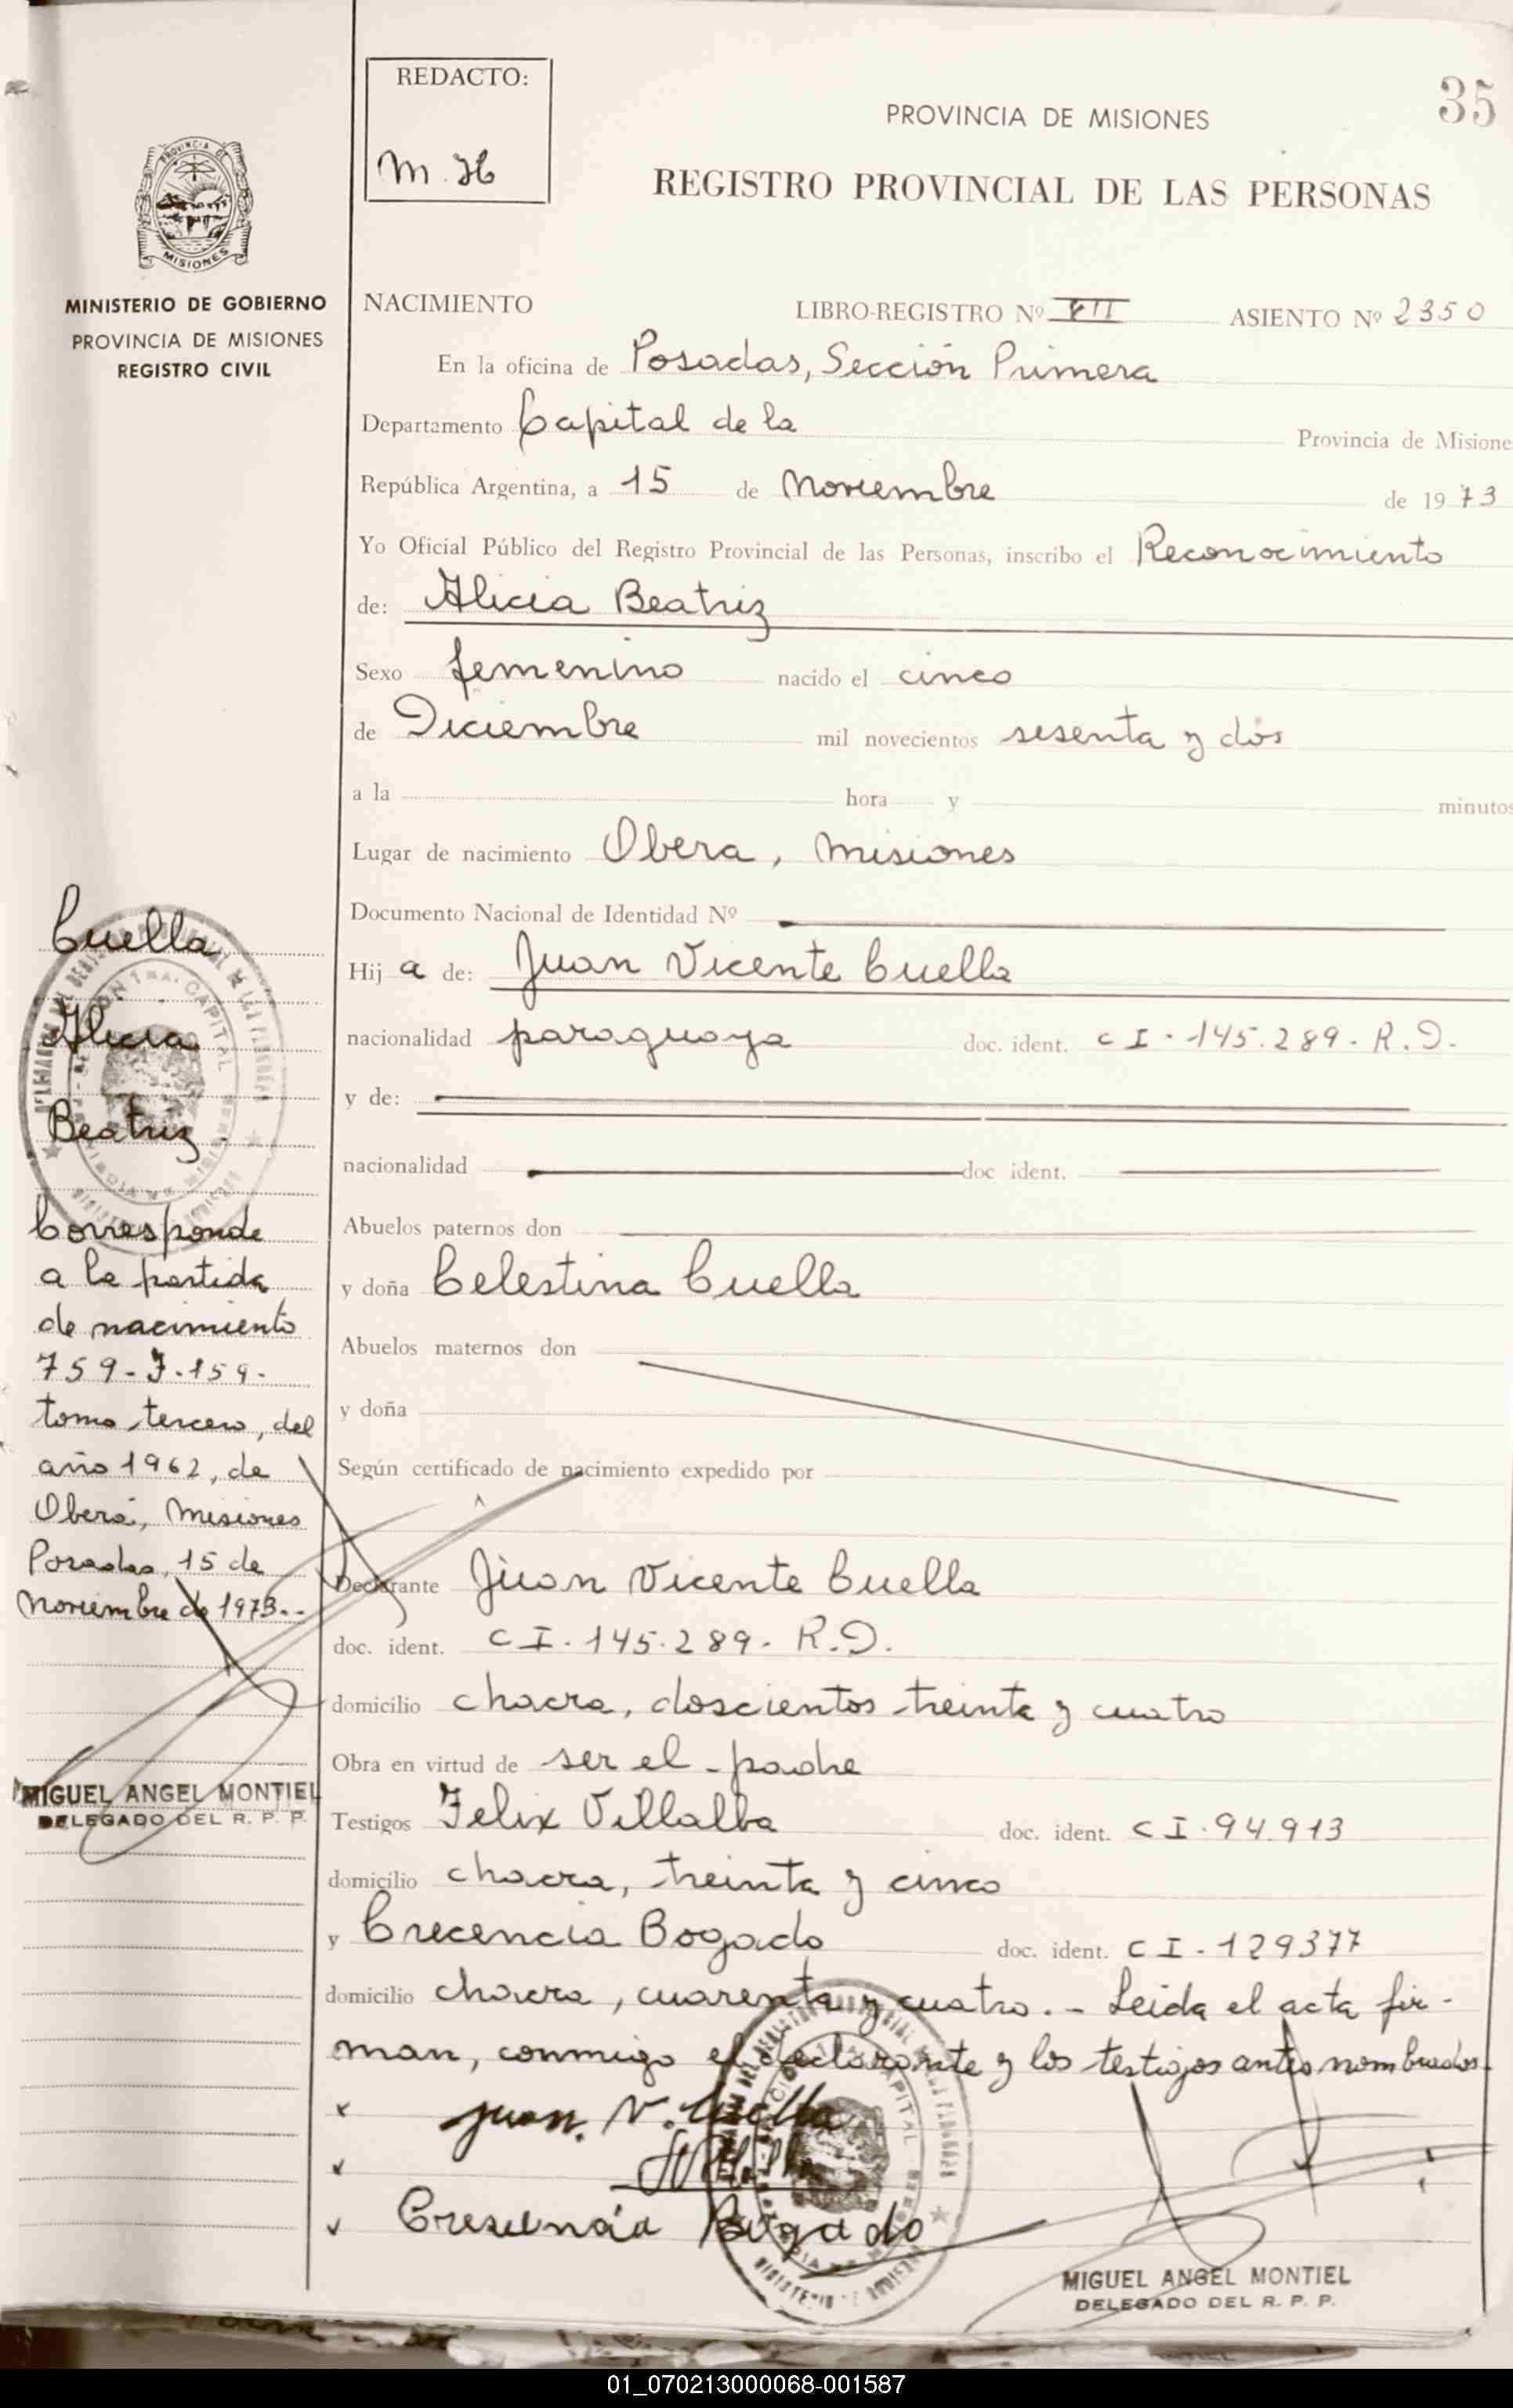 REDACTO:
M. H
35
PROVINCIA DE MISIONES
REGISTRO PROVINCIAL DE LAS PERSONAS
PROVINCIA DE
MISIONES
MINISTERIO DE GOBIERNO
PROVINCIA DE MISIONES
REGISTRO CIVIL
NACIMIENTO LIBRO-REGISTRO Nº ASIENTO Nº 2350
En la oficina de Posadas, Sección Primera
Departamento Capital de la Provincia de Misione
República Argentina, a 15 de Noviembre de 1973
Yo Oficial Público del Registro Provincial de las Personas, inscribo el Reconocimiento
de: Alicia Beatriz
Sexo femenino nacido el cinco
de Diciembre mil novecientos sesenta y dos
a la hora y minutos
Lugar de nacimiento Obera, Misiones
Documento Nacional de Identidad Nº
Hij a de: Juan Vicente Cuella
nacionalidad paraguaya doc. ident. C I - 145.289 - R.D.
y de:
nacionalidad doc ident.
Abuelos paternos don
y doña Celestina Cuella
Abuelos maternos don
y doña
Según certificado de nacimiento expedido por
Declarante Juan Vicente Cuella
doc. ident. C I - 145.289 - R.D.
domicilio chacra, doscientos treinta y cuatro
Obra en virtud de ser el padre
Testigos Felix Villalba doc. ident. C I - 94.913
domicilio chacra, treinta y cinco
y Crecencia Bogado doc. ident. C I - 129377
domicilio chacra, cuarenta y cuatro.- Leida el acta fir-
man, conmigo el declarante y los testigos antes nombrados.
Juan. V. Cuella
Cresencia Bogado
MIGUEL ANGEL MONTIEL
DELEGADO DEL R. P. P.
Cuella
Alicia
Beatriz
Corresponde
a la partida
de nacimiento
759-J-159-
tomo tercero, del
año 1962, de
Oberá, Misiones
Posadas, 15 de
Noviembre de 1973.-
MIGUEL ANGEL MONTIEL
DELEGADO DEL R. P. P.
01_070213000068-001587